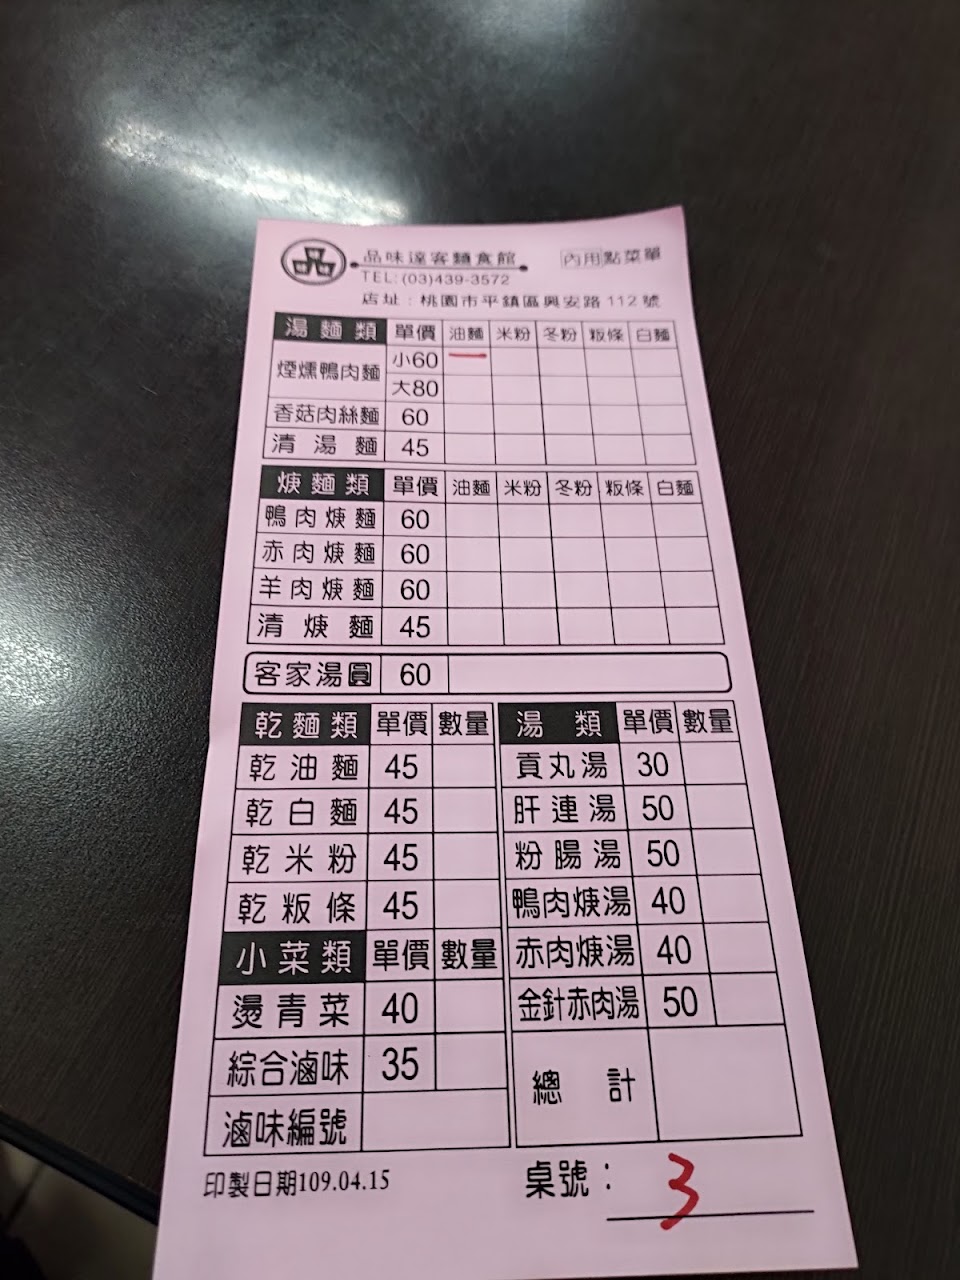 品 品味達客麵食館 內用點菜單
TEL:(03)439-3572
店址:桃園市平鎮區興安路112號
湯麵類 單價 油麵 米粉 冬粉 粄條 白麵
煙燻鴨肉麵 小60 一
大80
香菇肉絲麵 60
清湯麵 45
焿麵類 單價 油麵 米粉 冬粉 粄條 白麵
鴨肉焿麵 60
赤肉焿麵 60
羊肉焿麵 60
清焿麵 45
客家湯圓 60
乾麵類 單價 數量
乾油麵 45
乾白麵 45
乾米粉 45
乾粄條 45
小菜類 單價 數量
燙青菜 40
綜合滷味 35
滷味編號
湯類 單價 數量
貢丸湯 30
肝連湯 50
粉腸湯 50
鴨肉焿湯 40
赤肉焿湯 40
金針赤肉湯 50
總計
印製日期109.04.15
桌號: 3